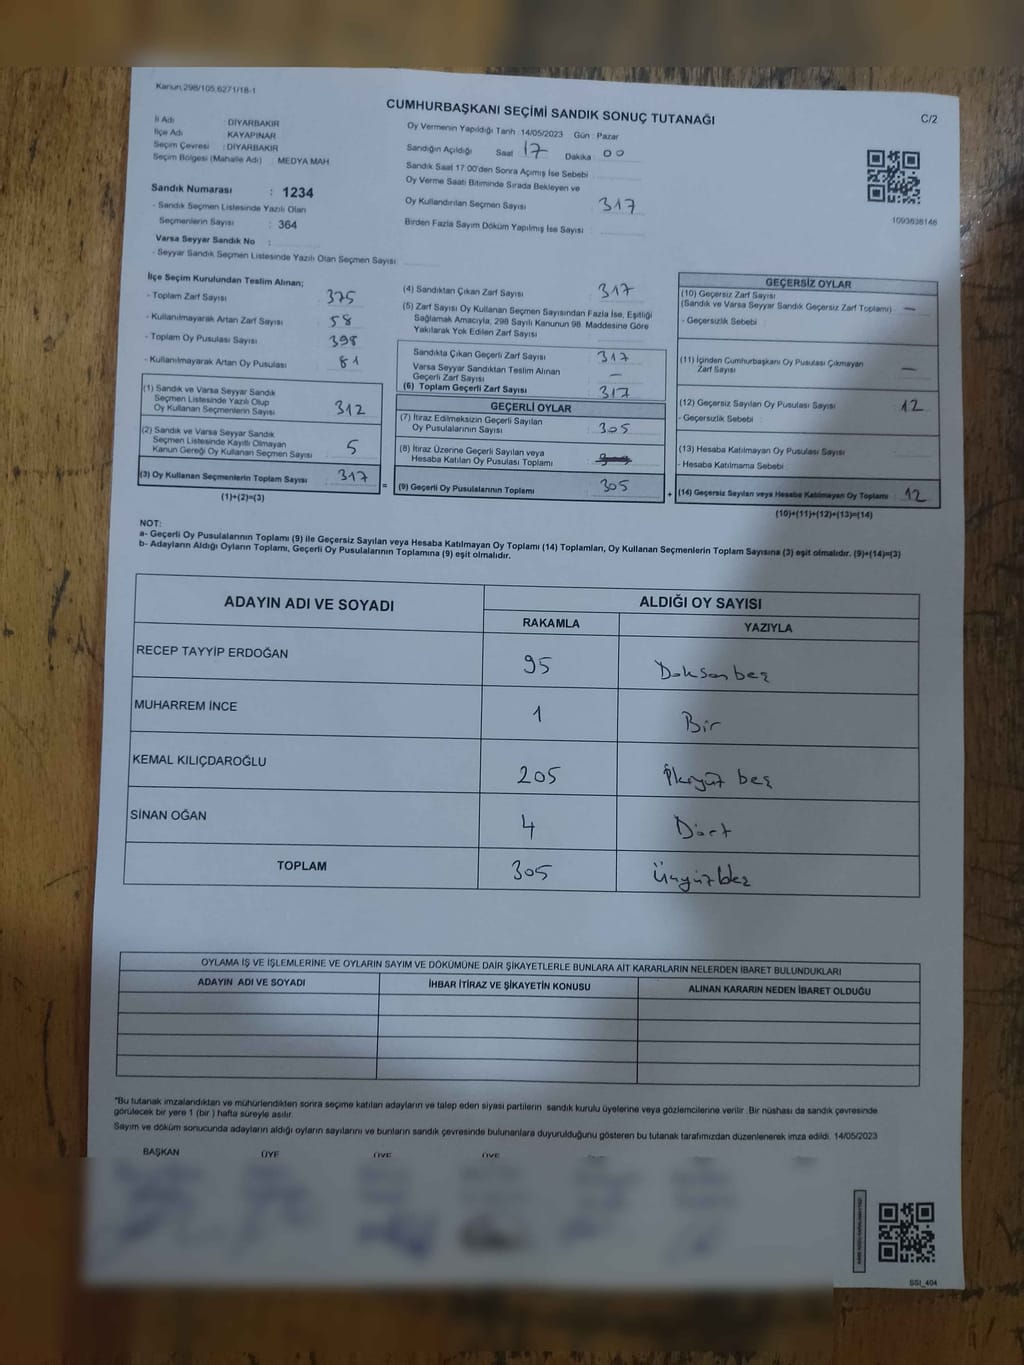 Kanun 298/105,6271/18-1
CUMHURBAŞKANI SEÇİMİ SANDIK SONUÇ TUTANAĞI
C/2
İli Adı DİYARBAKIR
İlçe Adı KAYAPINAR
Seçim Çevresi : DİYARBAKIR
Seçim Bölgesi (Mahalle Adı) : MEDYA MAH.
Sandık Numarası : 1234
- Sandık Seçmen Listesinde Yazılı Olan
Seçmenlerin Sayısı : 364
Varsa Seyyar Sandık No :
- Seyyar Sandık Seçmen Listesinde Yazılı Olan Seçmen Sayısı
Oy Vermenin Yapıldığı Tarih 14/05/2023 Gün Pazar
Sandığın Açıldığı Saat 17 Dakika 00
Sandık Saat 17.00'den Sonra Açılmış İse Sebebi
Oy Verme Saati Bitiminde Sırada Bekleyen ve
Oy Kullandırılan Seçmen Sayısı 317
Birden Fazla Sayım Döküm Yapılmış İse Sayısı
1093838146
İlçe Seçim Kurulundan Teslim Alınan;
- Toplam Zarf Sayısı 375
- Kullanılmayarak Artan Zarf Sayısı 58
- Toplam Oy Pusulası Sayısı 398
- Kullanılmayarak Artan Oy Pusulası 81
(1) Sandık ve Varsa Seyyar Sandık
Seçmen Listesinde Yazılı Olup
Oy Kullanan Seçmenlerin Sayısı 312
(2) Sandık ve Varsa Seyyar Sandık
Seçmen Listesinde Kayıtlı Olmayan
Kanun Gereği Oy Kullanan Seçmen Sayısı 5
(3) Oy Kullanan Seçmenlerin Toplam Sayısı 317
(1)+(2)=(3)
(4) Sandıktan Çıkan Zarf Sayısı 317
(5) Zarf Sayısı Oy Kullanan Seçmen Sayısından Fazla İse, Eşitliği
Sağlamak Amacıyla, 298 Sayılı Kanunun 98. Maddesine Göre
Yakılarak Yok Edilen Zarf Sayısı
Sandıkta Çıkan Geçerli Zarf Sayısı 317
Varsa Seyyar Sandıktan Teslim Alınan
Geçerli Zarf Sayısı —
(6) Toplam Geçerli Zarf Sayısı 317
GEÇERLİ OYLAR
(7) İtiraz Edilmeksizin Geçerli Sayılan
Oy Pusulalarının Sayısı 305
(8) İtiraz Üzerine Geçerli Sayılan veya
Hesaba Katılan Oy Pusulası Toplamı
= (9) Geçerli Oy Pusulalarının Toplamı 305
GEÇERSİZ OYLAR
(10) Geçersiz Zarf Sayısı
(Sandık ve Varsa Seyyar Sandık Geçersiz Zarf Toplamı) —
- Geçersizlik Sebebi
(11) İçinden Cumhurbaşkanı Oy Pusulası Çıkmayan
Zarf Sayısı —
(12) Geçersiz Sayılan Oy Pusulası Sayısı 12
- Geçersizlik Sebebi
(13) Hesaba Katılmayan Oy Pusulası Sayısı
- Hesaba Katılmama Sebebi
+ (14) Geçersiz Sayılan veya Hesaba Katılmayan Oy Toplamı 12
(10)+(11)+(12)+(13)=(14)
NOT:
a- Geçerli Oy Pusulalarının Toplamı (9) ile Geçersiz Sayılan veya Hesaba Katılmayan Oy Toplamı (14) Toplamları, Oy Kullanan Seçmenlerin Toplam Sayısına (3) eşit olmalıdır. (9)+(14)=(3)
b- Adayların Aldığı Oyların Toplamı, Geçerli Oy Pusulalarının Toplamına (9) eşit olmalıdır.
ADAYIN ADI VE SOYADI ALDIĞI OY SAYISI
RAKAMLA YAZIYLA
RECEP TAYYİP ERDOĞAN 95 Doksanbeş
MUHARREM İNCE 1 Bir
KEMAL KILIÇDAROĞLU 205 İkiyüz beş
SİNAN OĞAN 4 Dört
TOPLAM 305 Üçyüzbeş
OYLAMA İŞ VE İŞLEMLERİNE VE OYLARIN SAYIM VE DÖKÜMÜNE DAİR ŞİKAYETLERLE BUNLARA AİT KARARLARIN NELERDEN İBARET BULUNDUKLARI
ADAYIN ADI VE SOYADI İHBAR İTİRAZ VE ŞİKAYETİN KONUSU ALINAN KARARIN NEDEN İBARET OLDUĞU
"Bu tutanak imzalandıktan ve mühürlendikten sonra seçime katılan adayların ve talep eden siyasi partilerin sandık kurulu üyelerine veya gözlemcilerine verilir. Bir nüshası da sandık çevresinde
görülecek bir yere 1 (bir ) hafta süreyle asılır.
Sayım ve döküm sonucunda adayların aldığı oyların sayılarını ve bunların sandık çevresinde bulunanlara duyurulduğunu gösteren bu tutanak tarafımızdan düzenlenerek imza edildi. 14/05/2023
BAŞKAN ÜYE ÜYE ÜYE
SSt_404